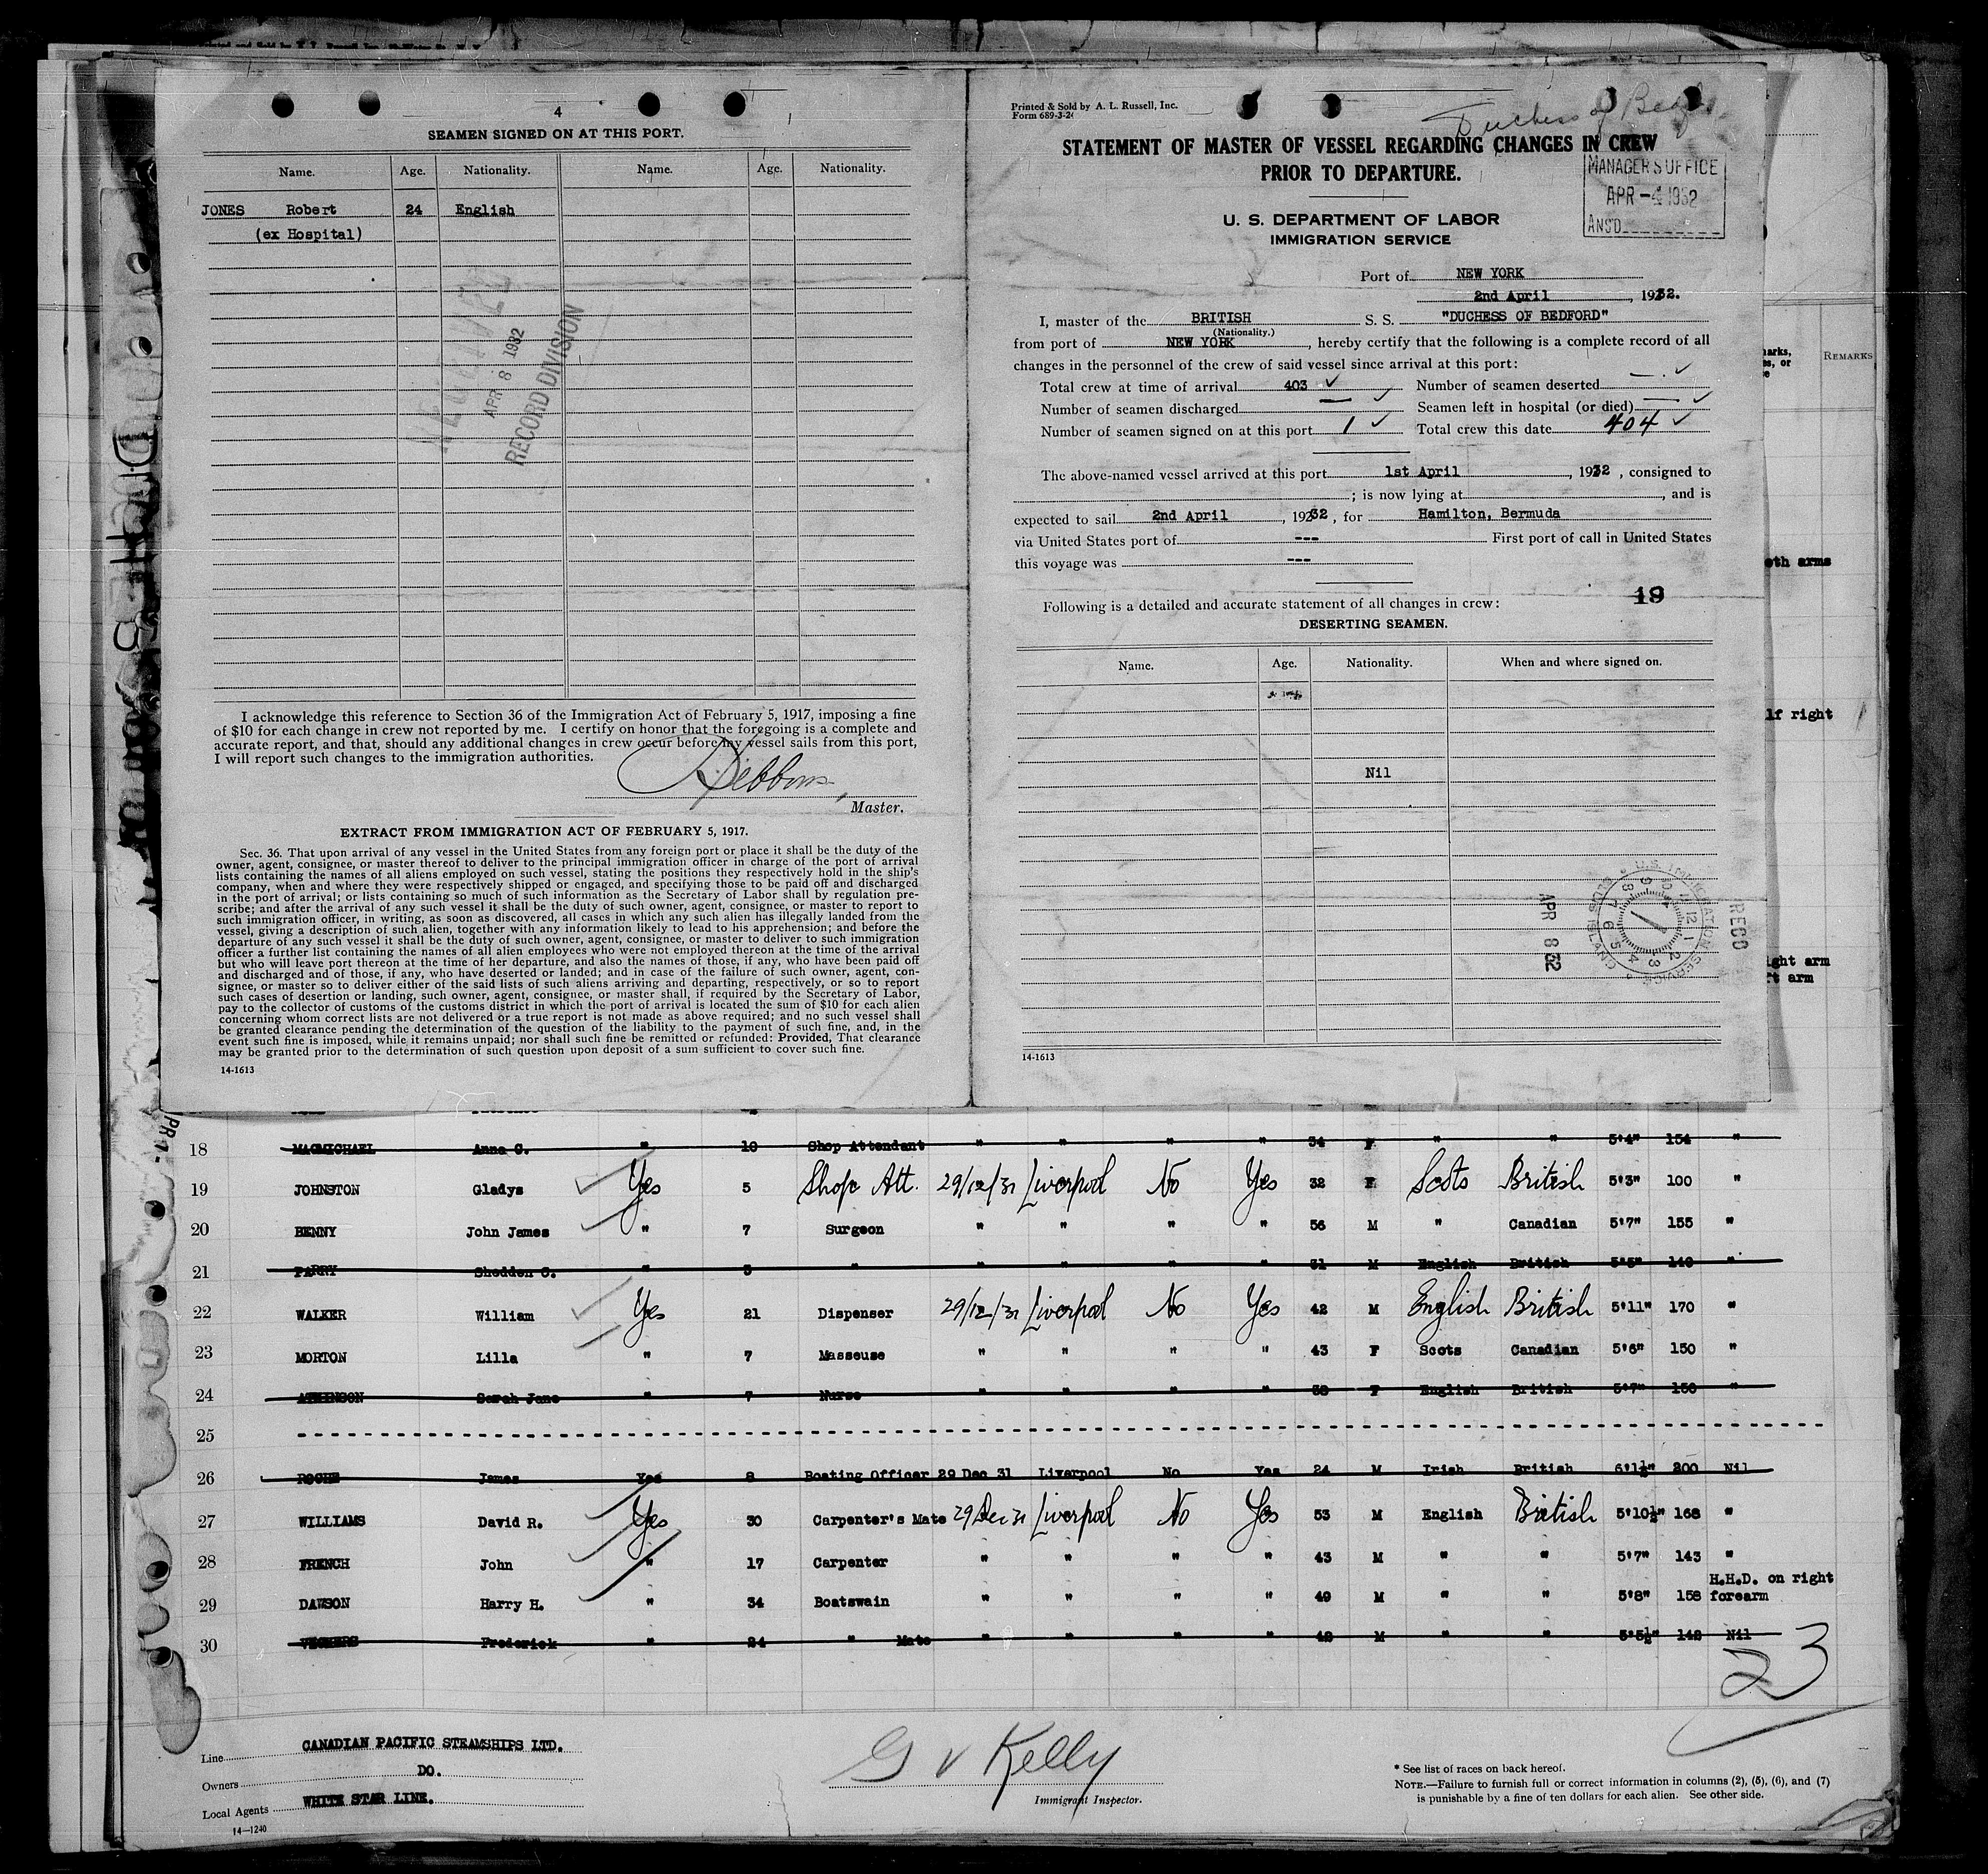 4
SEAMEN SIGNED ON AT THIS PORT.
Name. Age. Nationality. Name. Age. Nationality.
JONES Robert 24 English
(ex Hospital)
RECEIVED
APR 8 1932
RECORD DIVISION
I acknowledge this reference to Section 36 of the Immigration Act of February 5, 1917, imposing a fine
of $10 for each change in crew not reported by me. I certify on honor that the foregoing is a complete and
accurate report, and that, should any additional changes in crew occur before my vessel sails from this port,
I will report such changes to the immigration authorities.
Master.
EXTRACT FROM IMMIGRATION ACT OF FEBRUARY 5, 1917.
Sec. 36. That upon arrival of any vessel in the United States from any foreign port or place it shall be the duty of the
owner, agent, consignee, or master thereof to deliver to the principal immigration officer in charge of the port of arrival
lists containing the names of all aliens employed on such vessel, stating the positions they respectively hold in the ship's
company, when and where they were respectively shipped or engaged, and specifying those to be paid off and discharged
in the port of arrival; or lists containing so much of such information as the Secretary of Labor shall by regulation pre-
scribe; and after the arrival of any such vessel it shall be the duty of such owner, agent, consignee, or master to report to
such immigration officer, in writing, as soon as discovered, all cases in which any such alien has illegally landed from the
vessel, giving a description of such alien, together with any information likely to lead to his apprehension; and before the
departure of any such vessel it shall be the duty of such owner, agent, consignee, or master to deliver to such immigration
officer a further list containing the names of all alien employees who were not employed thereon at the time of the arrival
but who will leave port thereon at the time of her departure, and also the names of those, if any, who have been paid off
and discharged and of those, if any, who have deserted or landed; and in case of the failure of such owner, agent, con-
signee, or master so to deliver either of the said lists of such aliens arriving and departing, respectively, or so to report
such cases of desertion or landing, such owner, agent, consignee, or master shall, if required by the Secretary of Labor,
pay to the collector of customs of the customs district in which the port of arrival is located the sum of $10 for each alien
concerning whom correct lists are not delivered or a true report is not made as above required; and no such vessel shall
be granted clearance pending the determination of the question of the liability to the payment of such fine, and, in the
event such fine is imposed, while it remains unpaid; nor shall such fine be remitted or refunded: Provided, That clearance
may be granted prior to the determination of such question upon deposit of a sum sufficient to cover such fine.
14-1613
Printed & Sold by A. L. Russell, Inc.
Form 689-3-24
Duchess of Bedford
STATEMENT OF MASTER OF VESSEL REGARDING CHANGES IN CREW
PRIOR TO DEPARTURE.
MANAGER'S OFFICE
APR -4 1932
ANS'D
U. S. DEPARTMENT OF LABOR
IMMIGRATION SERVICE
Port of NEW YORK
2nd April, 1932.
I, master of the BRITISH S. S. "DUCHESS OF BEDFORD"
(Nationality.)
from port of NEW YORK, hereby certify that the following is a complete record of all
changes in the personnel of the crew of said vessel since arrival at this port:
Total crew at time of arrival 403 Number of seamen deserted —
Number of seamen discharged — Seamen left in hospital (or died) —
Number of seamen signed on at this port 1 Total crew this date 404
The above-named vessel arrived at this port 1st April, 1932, consigned to
; is now lying at , and is
expected to sail 2nd April, 1932, for Hamilton, Bermuda
via United States port of --- First port of call in United States
this voyage was ---
Following is a detailed and accurate statement of all changes in crew:
19
DESERTING SEAMEN.
Name. Age. Nationality. When and where signed on.
Nil
APR 8 32
U.S. IMMIGRATION SERVICE ELLIS ISLAND
RECD
14-1613
REMARKS
eth arms
lf right
ight arm
rt arm
18 MACMICHAEL Anna C. " 10 Shop Attendant " " " " 34 F " " 5'4" 154 "
19 JOHNSTON Gladys Yes 5 Shop Att. 29/12/31 Liverpool No Yes 32 F Scots British 5'3" 100 "
20 BENNY John James " 7 Surgeon " " " " 56 M " Canadian 5'7" 155 "
21 PARRY Shedden C. " 3 " " " " " 31 M English British 5'5" 140 "
22 WALKER William Yes 21 Dispenser 29/12/31 Liverpool No Yes 42 M English British 5'11" 170 "
23 MORTON Lilla " 7 Masseuse " " " " 43 F Scots Canadian 5'6" 150 "
24 ATKINSON Sarah Jane " 7 Nurse " " " " 38 F English British 5'7" 150 "
25
26 ROCHE James Yes 8 Boating Officer 29 Dec 31 Liverpool No Yes 24 M Irish British 6'1½" 200 Nil
27 WILLIAMS David R. Yes 30 Carpenter's Mate 29 Dec 31 Liverpool No Yes 53 M English British 5'10½" 168 "
28 FRENCH John " 17 Carpenter " " " " 43 M " " 5'7" 143 "
29 DAWSON Harry H. " 34 Boatswain " " " " 49 M " " 5'8" 158 H.H.D. on right forearm
30 VICKERS Frederick " 24 " Mate " " " " 42 M " " 5'5½" 142 Nil
23
Line CANADIAN PACIFIC STEAMSHIPS LTD.
Owners DO.
Local Agents WHITE STAR LINE.
14-1240
G V Kelly
Immigrant Inspector.
* See list of races on back hereof.
NOTE.—Failure to furnish full or correct information in columns (2), (5), (6), and (7)
is punishable by a fine of ten dollars for each alien. See other side.